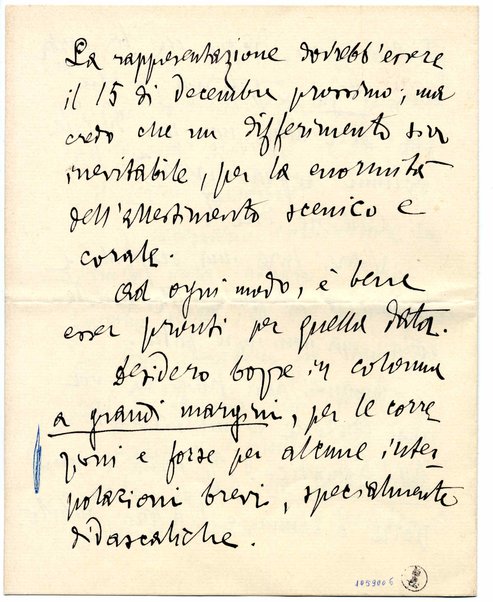 La rappresentazione dovrebb'essere
il 15 di decembre prossimo; ma
credo che un differimento sia
inevitabile, per la enormità
dell'allestimento scenico e
corale.
Ad ogni modo, è bene
esser pronti per quella data.
Desidero bozze in colonna
a grandi margini, per le corre-
zioni e forse per alcune inter-
polazioni brevi, specialmente
didascaliche.
1059006